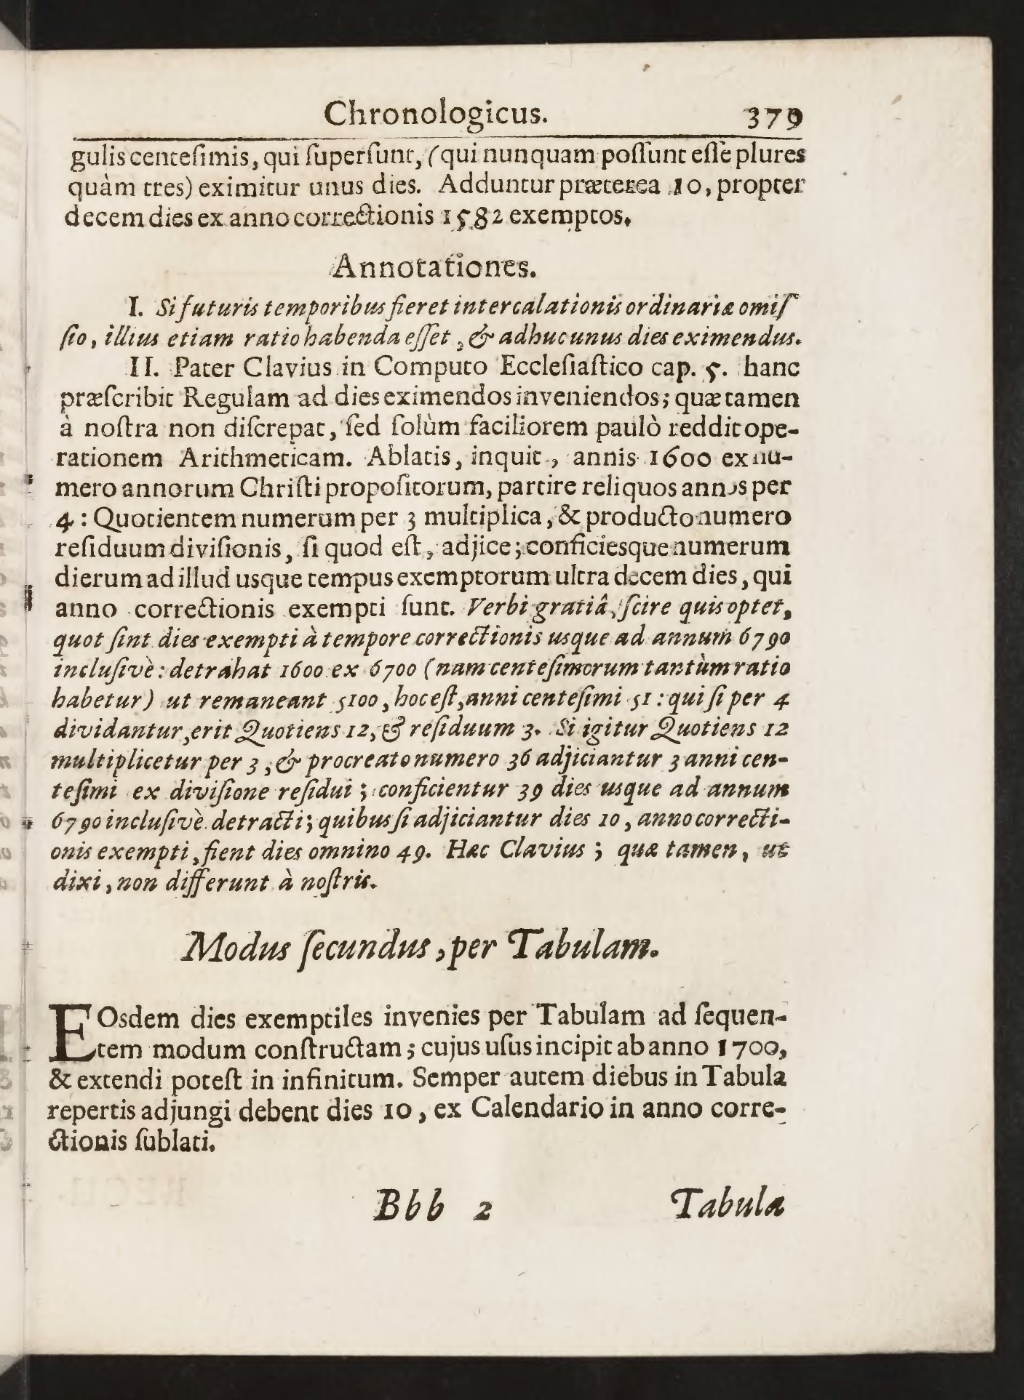 Chronologicus. 379
gulis centesimis, qui supersunt, (qui nunquam possunt esse plures
quàm tres) eximitur unus dies. Adduntur præterea 10, propter
decem dies ex anno correctionis 1582 exemptos.
Annotationes.
I. Si futuris temporibus fieret intercalationis ordinariæ omis
sio, illius etiam ratio habenda esset, & adhuc unus dies eximendus.
II. Pater Clavius in Computo Ecclesiastico cap. 5. hanc
præscribit Regulam ad dies eximendos inveniendos; quæ tamen
à nostra non discrepat, sed solùm faciliorem paulò reddit ope-
rationem Arithmeticam. Ablatis, inquit, annis 1600 ex nu-
mero annorum Christi propositorum, partire reliquos annos per
4: Quotientem numerum per 3 multiplica, & producto numero
residuum divisionis, si quod est, adjice; conficiesque numerum
dierum ad illud usque tempus exemptorum ultra decem dies, qui
anno correctionis exempti sunt. Verbi gratiâ, scire quis optet,
quot sint dies exempti à tempore correctionis usque ad annum 6790
inclusivè: detrahat 1600 ex 6700 (nam centesimorum tantùm ratio
habetur) ut remaneant 5100, hoc est, anni centesimi 51: qui si per 4
dividantur, erit Quotiens 12, & residuum 3. Si igitur Quotiens 12
multiplicetur per 3, & procreato numero 36 adjiciantur 3 anni cen-
tesimi ex divisione residui; conficientur 39 dies usque ad annum
6790 inclusivè detracti; quibus si adjiciantur dies 10, anno correcti-
onis exempti, fient dies omnino 49. Hæc Clavius; quæ tamen, ut
dixi, non differunt à nostris.
Modus secundus, per Tabulam.
EOsdem dies exemptiles invenies per Tabulam ad sequen-
tem modum constructam; cujus usus incipit ab anno 1700,
& extendi potest in infinitum. Semper autem diebus in Tabula
repertis adjungi debent dies 10, ex Calendario in anno corre-
ctionis sublati.
Bbb 2 Tabula